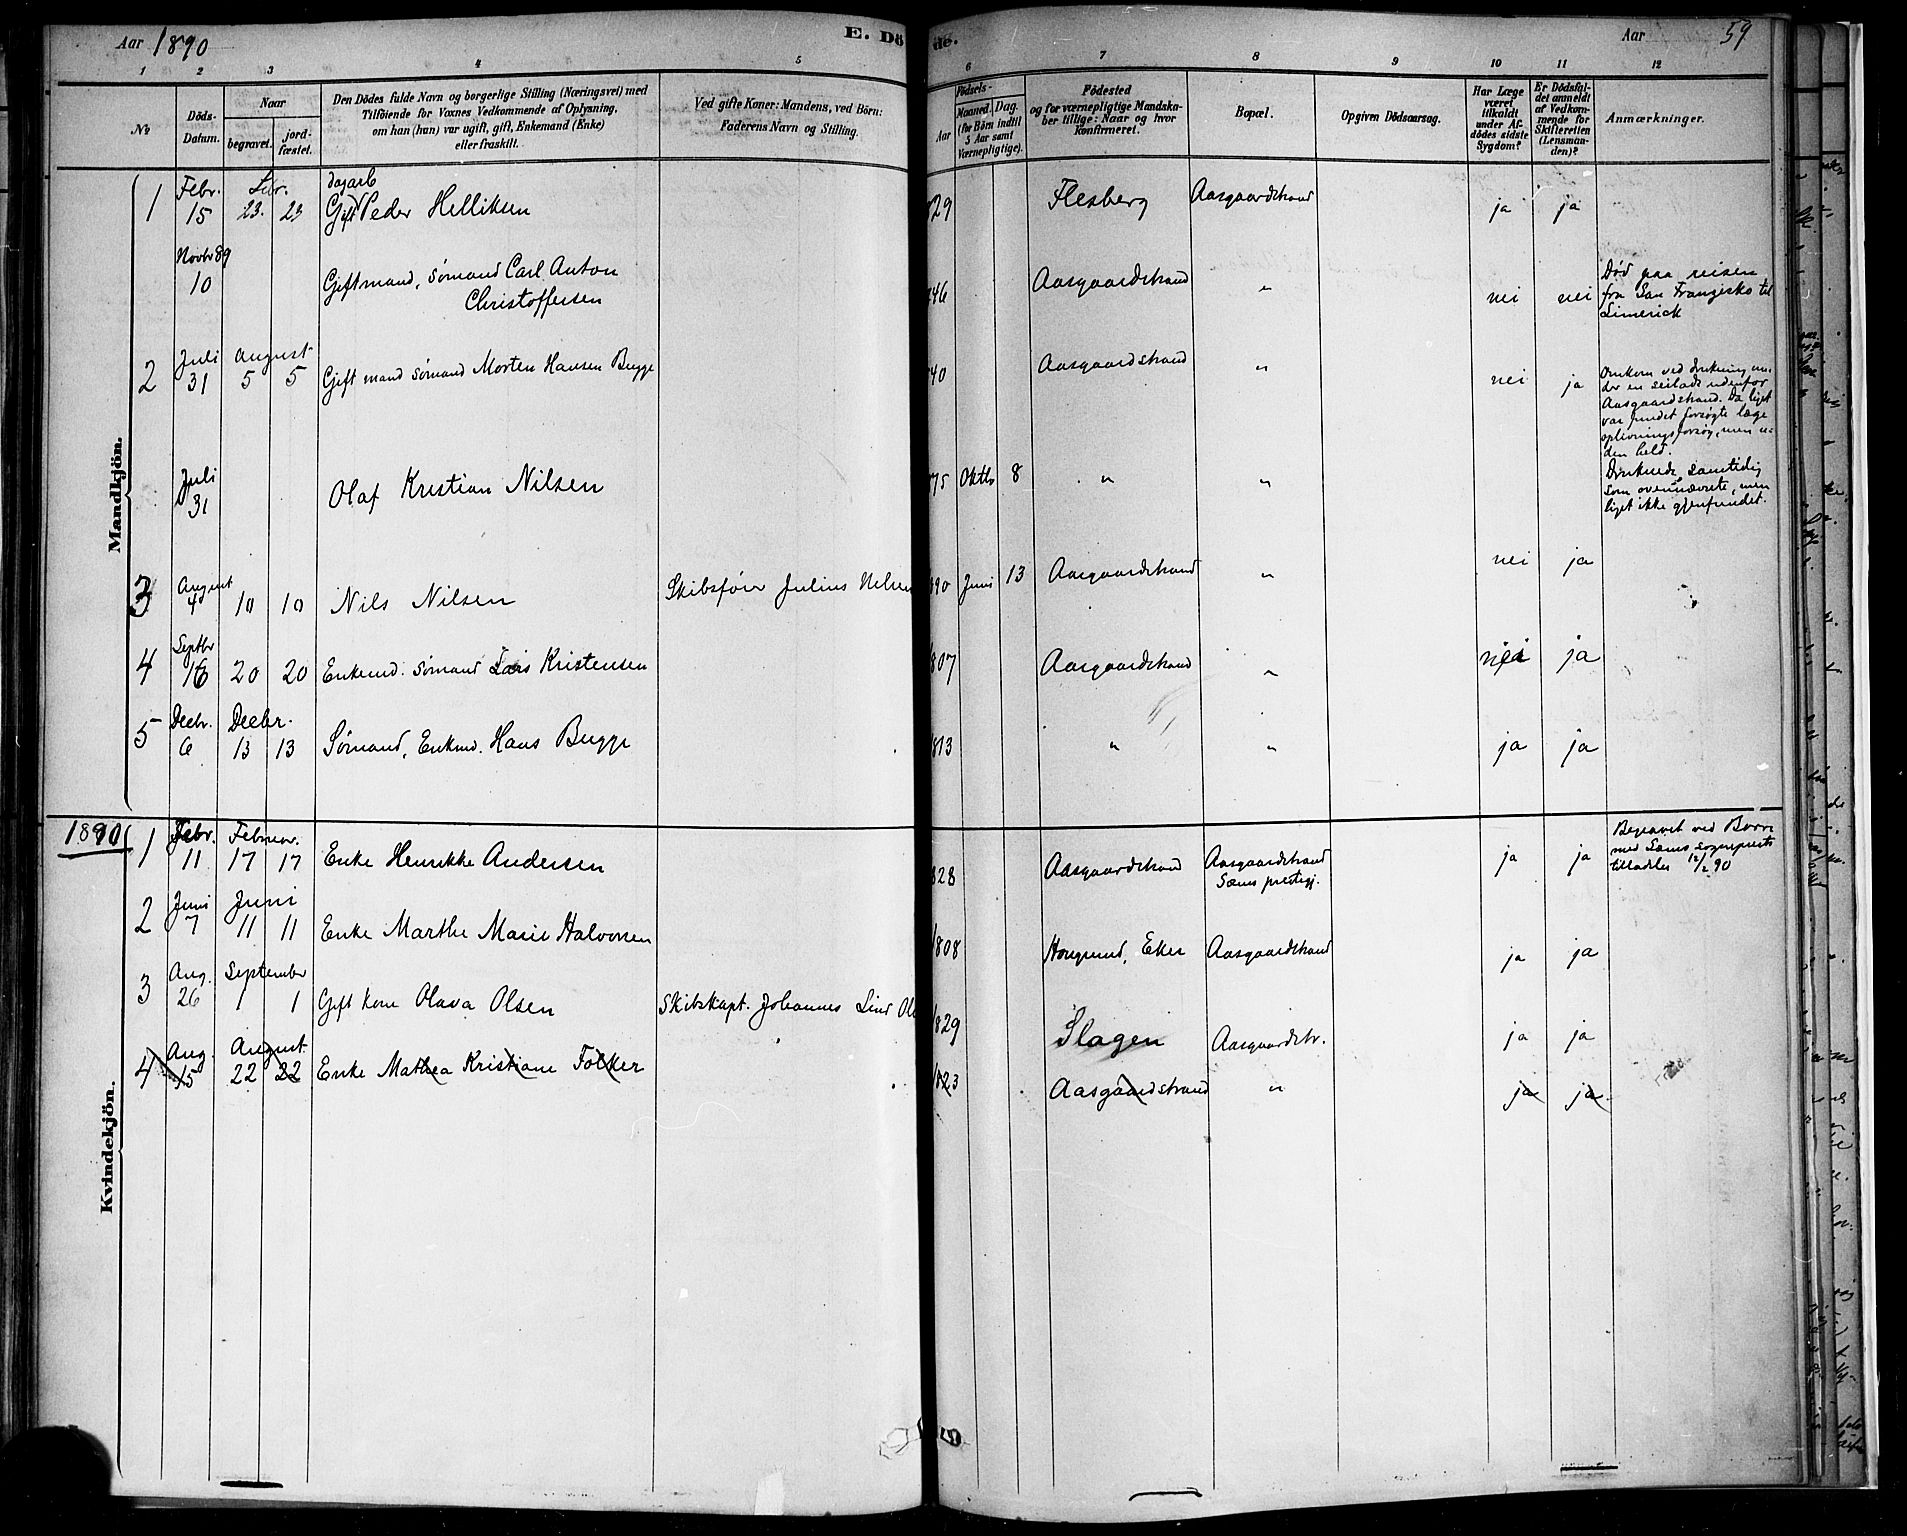 Aar 1890
E. Dö
de.
Aar
59
1 2 3 4 5 6 7 8 9 10 11 12
No
Döds-
Datum.
Naar
begravet.
jord-
fæstet.
Den Dödes fulde Navn og borgerlige Stilling (Næringsvei) med
Tilföiende for Voxnes Vedkommende af Oplysning,
om han (hun) var ugift, gift, Enkemand (Enke)
eller fraskilt.
Ved gifte Koner: Mandens, ved Börn:
Faderens Navn og Stilling.
Födsels-
Aar
Maaned. Dag.
(for Börn indtil
5 Aar samt
Værnepligtige).
Födested
og for værnepligtige Mandska-
ber tillige: Naar og hvor
konfirmeret.
Bopæl.
Opgiven Dödsaarsag.
Har Læge
været
tilkaldt
under Af-
dödes sidste
Sygdom?
Er Dödsfal-
det anmeldt
af Vedkom-
mende for
Skifteretten
(Lensman-
den)?
Anmærkninger.
Mandkjön.
1 Febr. 15 23. 23 dagarb
Gift Peder Helliksen 29 Flesberg Aasgaardstrand ja ja
Novbr 89
10 Giftmand, Sømand Carl Anton
Christoffersen 46 Aasgaardstrand " nei nei
Død paa reisen
fra San Franzisko til
Limerick
2 Juli 31 August 5 5 Gift mand sømand Morten Hansen Bugge 40 Aasgaardstrand " nei ja
Omkom ved drukning un-
der en seilads udenfor
Aasgaardstrand. Da liget
var fundet forsøgte læge
oplivningsforsøg, men u-
den held.
Juli 31 Olaf Kristian Nilsen 875 Oktbr 8 " "
Druknede samtidig
som ovennævnte, men
liget ikke gjenfundet.
3 August 4 10 10 Nils Nilsen Skibsfører Julius Nilsen 890 Juni 13 Aasgaardstrand " nei ja
4 Septbr 16 20 20 Enkemd. Sømand Lars Kristensen 807 Aasgaardstrand " nei ja
5 Decbr. 6 Decbr. 13 13 Sømand, Enkemd. Hans Bugge 813 " " ja ja
1890
Kvindekjön.
1 Febr. 11 Februar. 17 17 Enke Henrikke Andersen 828 Aasgaardstrand Aasgaardstrand
Sæms prestegj. ja ja
Begravet ved Borre
med Sæms sogneprests
tilladelse 12/2 90
2 Juni 7 Juni 11 11 Enke Marthe Marie Halvorsen 1808 Hougsund, Eker Aasgaardstrand ja ja
3 Aug. 26 September 1 1 Gift kone Olava Olsen Skibskapt. Johannes Lind Ol 1829 Slagen Aasgaardstr. ja ja
4 Aug. 15 August 22 22 Enke Mathea Kristiane Folker 1823 Aasgaardstrand " ja ja.